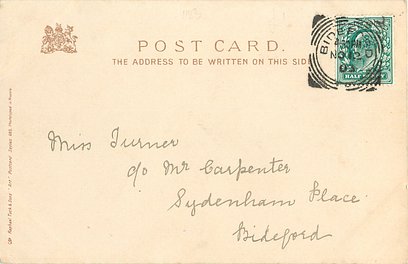 POST CARD.
THE ADDRESS TO BE WRITTEN ON THIS SIDE
BIDEFORD
NO 2
03
HALF PENNY
Miss Turner
c/o Mr Carpenter
Sydenham Place
Bideford
Raphael Tuck & Sons' "Art" Postcard